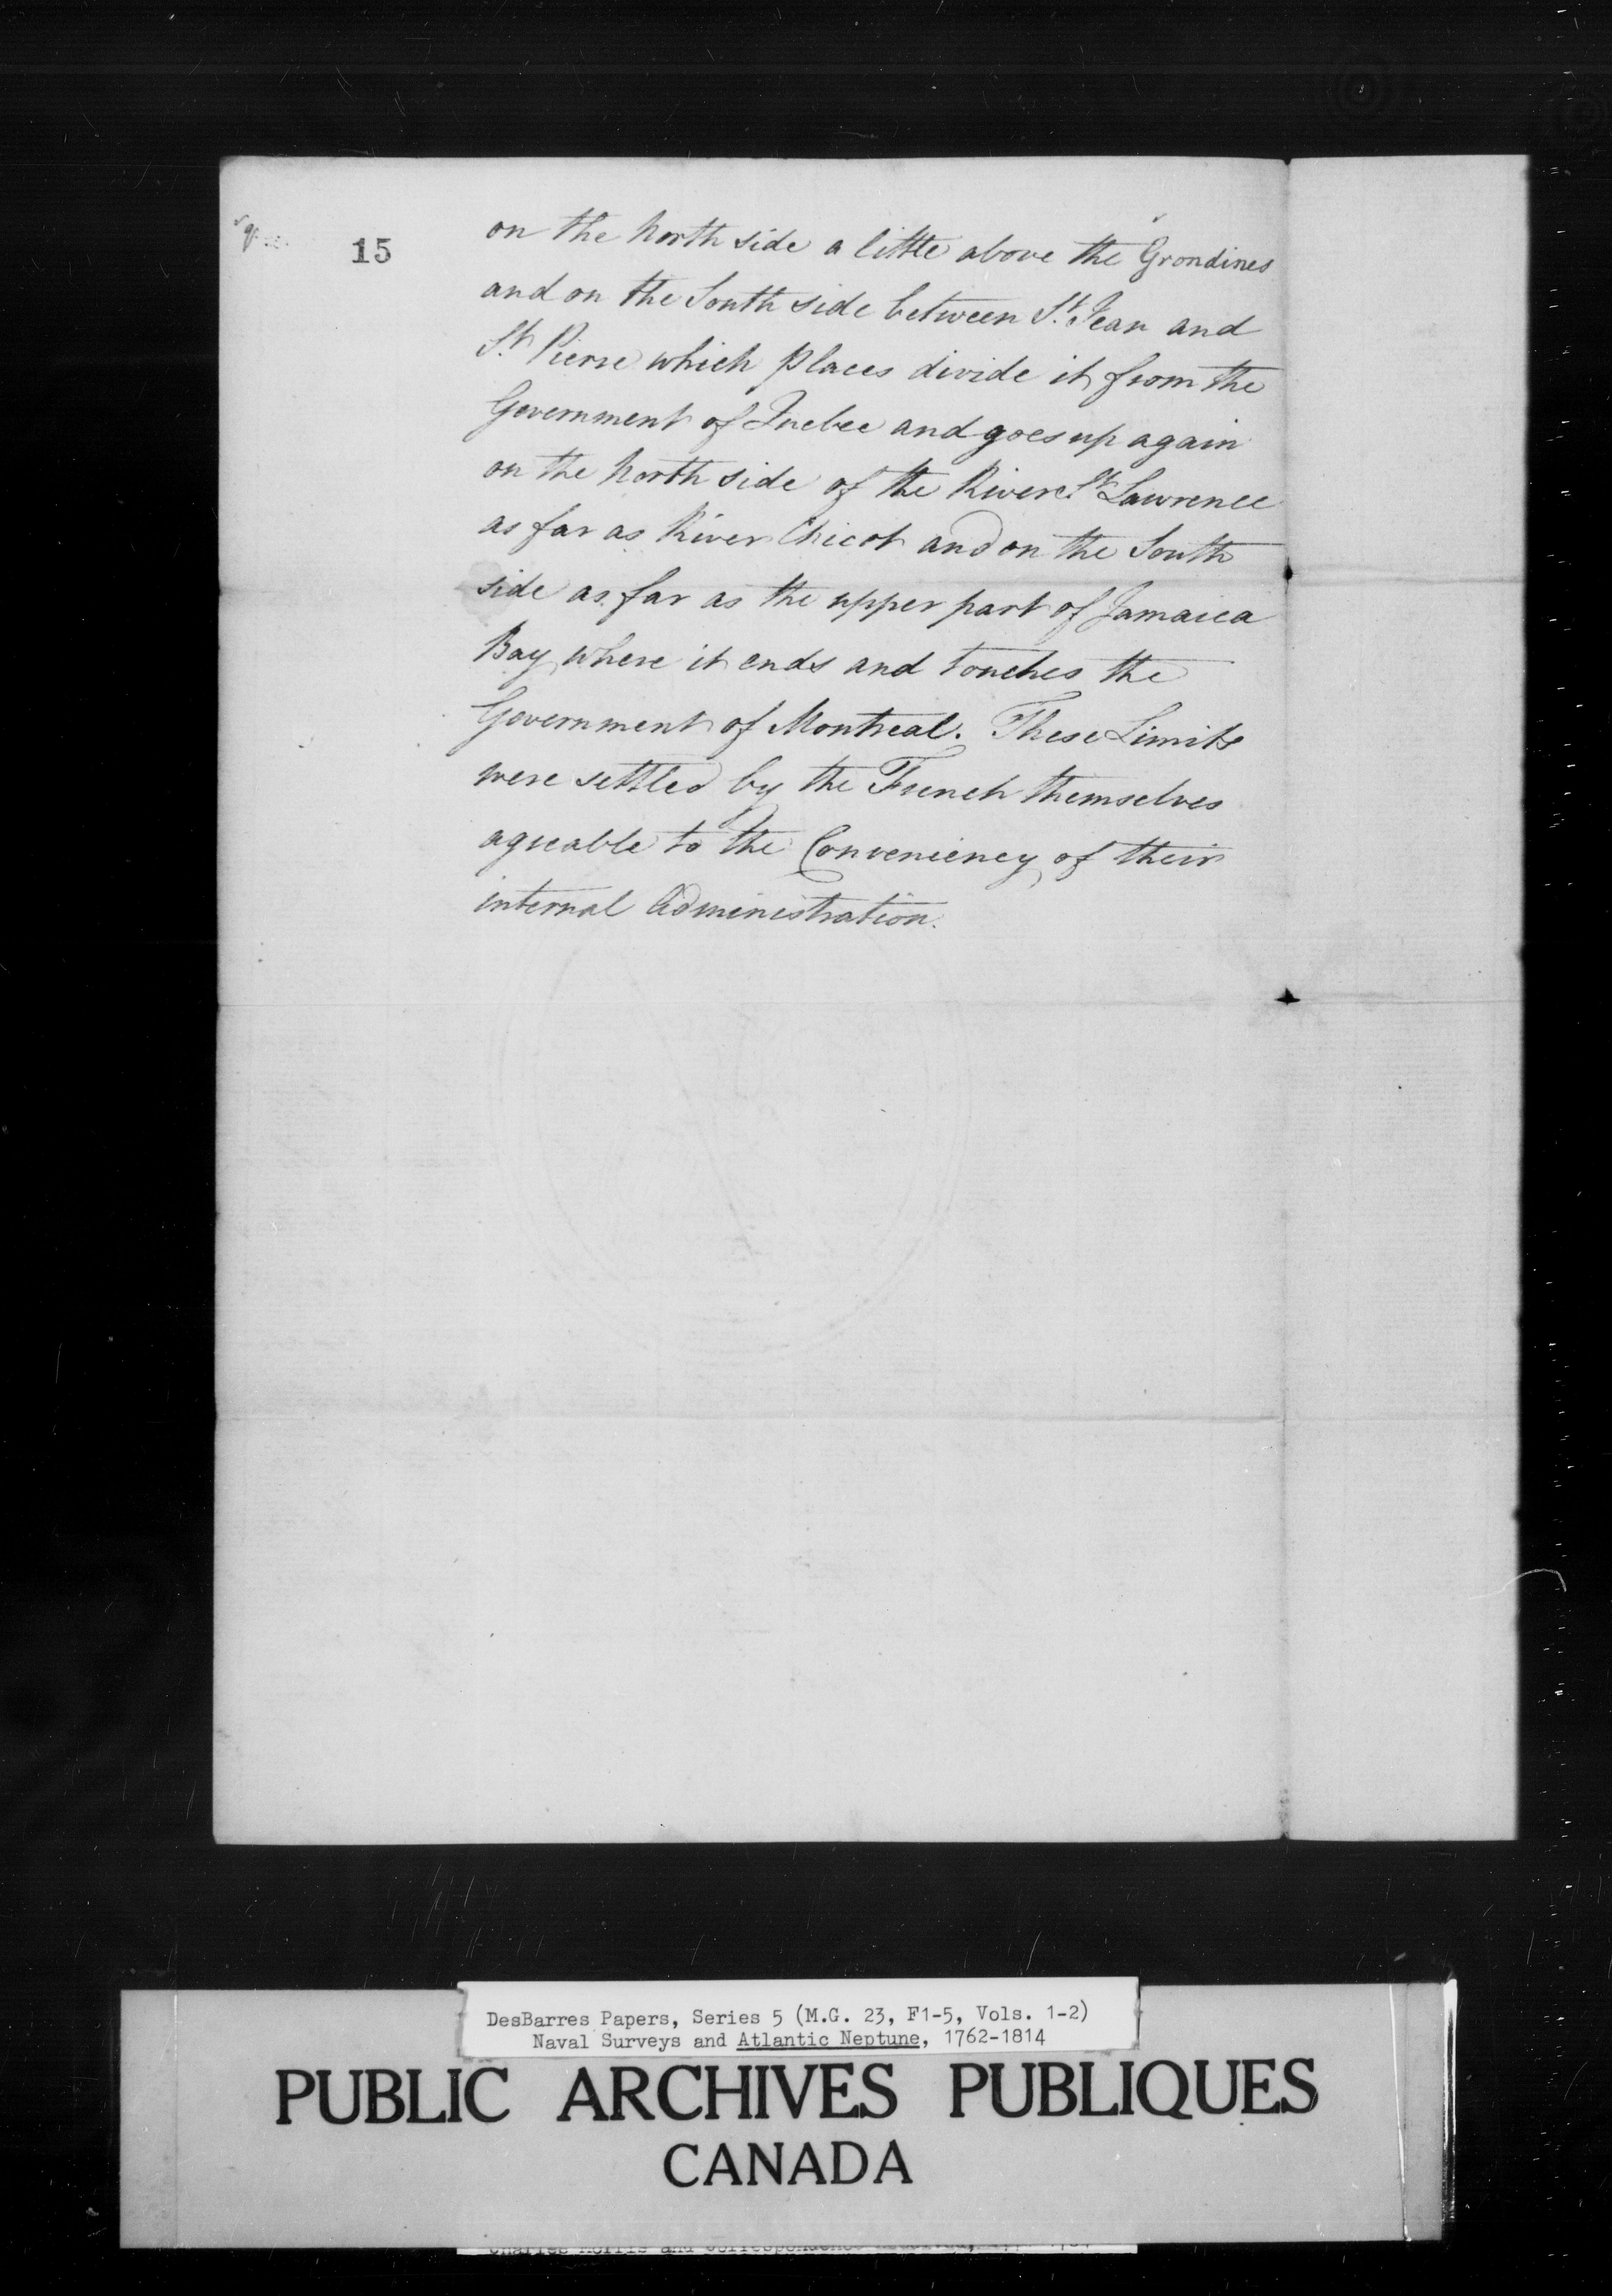 15
on the North side a little above the Grondines
and on the South side between St. Jean and
St. Pierre which places divide it from the
Government of Quebec and goes up again
on the North side of the River St. Lawrence
as far as River Chicot and on the South
side as far as the upper part of Jamaica
Bay where it ends and touches the
Government of Montreal. These Limits
were settled by the French themselves
agreable to the Conveniency of their
internal Administration.
DesBarres Papers, Series 5 (M.G. 23, F1-5, Vols. 1-2)
Naval Surveys and Atlantic Neptune, 1762-1814
PUBLIC ARCHIVES PUBLIQUES
CANADA